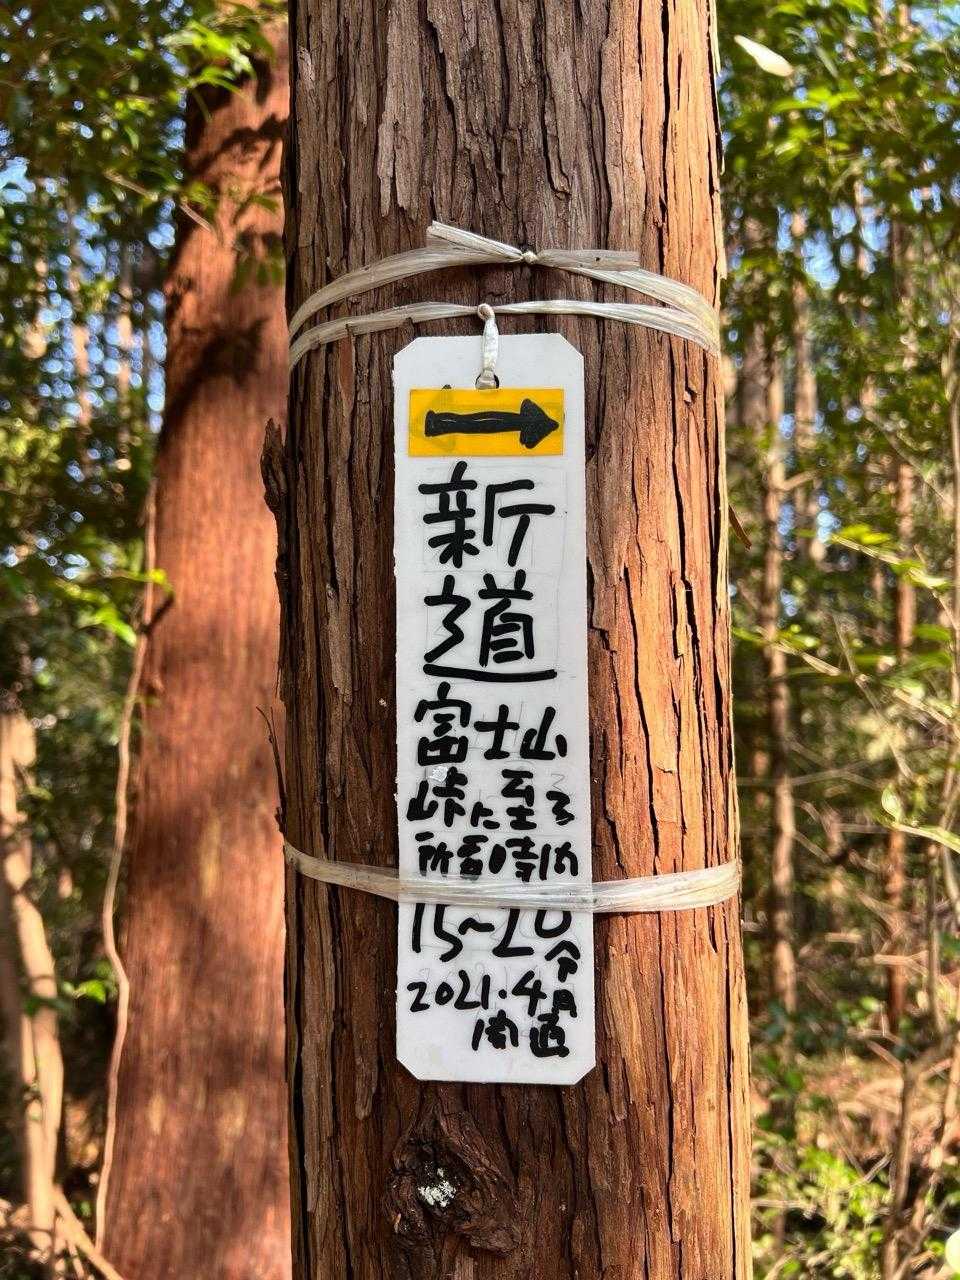 新
道
富士山
峠に至る
所要時間
15~20
分
2021.4月
開道